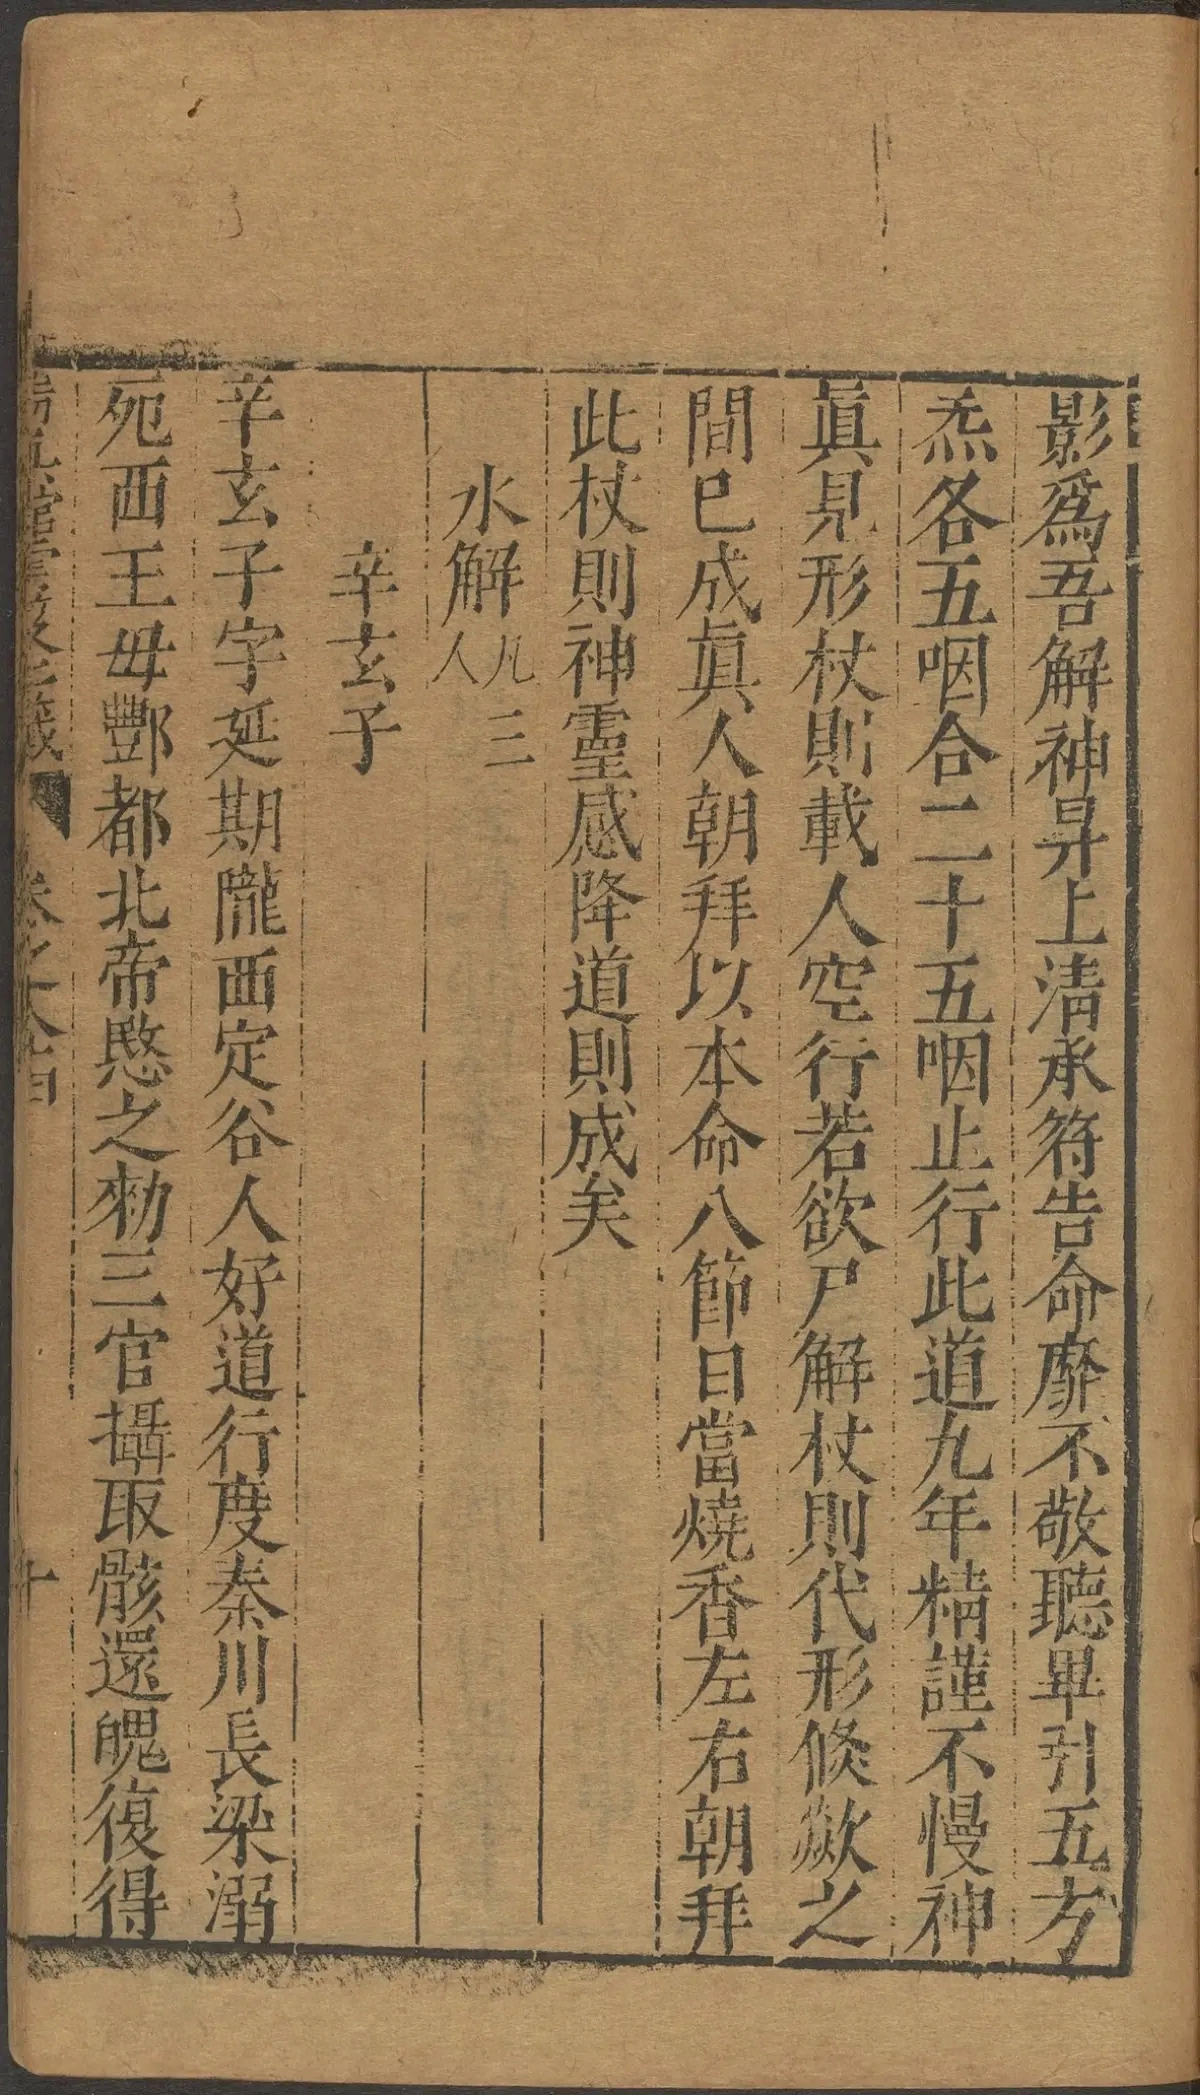 影爲吾解神昇上清承符告命靡不敬聽畢引五方
炁各五咽合二十五咽止行此道九年精謹不慢神
眞見形杖則載人空行若欲尸解杖則代形倏歘之
間已成眞人朝拜以本命八節日當燒香左右朝拜
此杖則神靈感降道則成矣
水解凡三人
辛玄子
辛玄子字延期隴西定谷人好道行度秦川長梁溺
死西王母酆都北帝愍之勑三官攝取骸還魄復得
卷之八十四 十